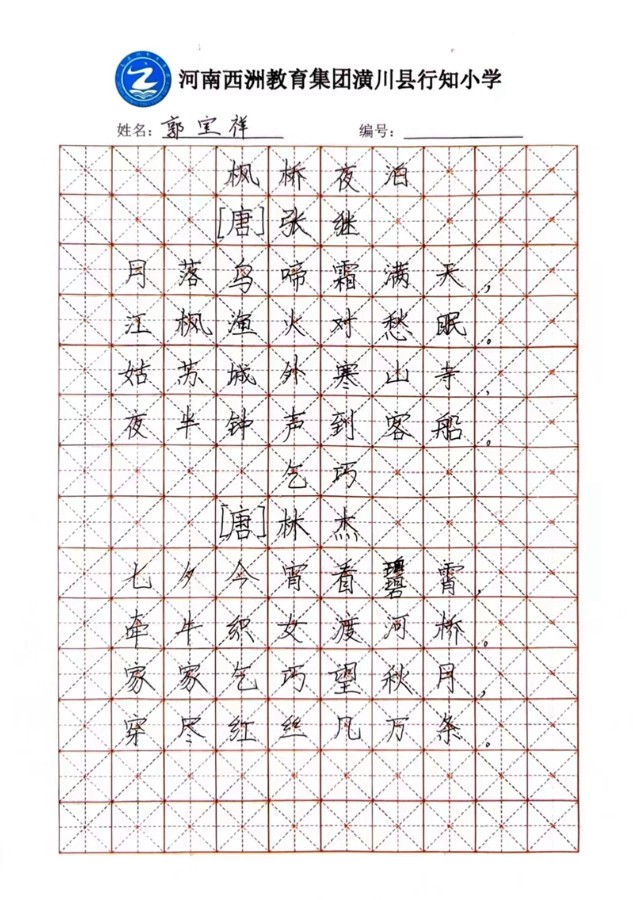 河南西洲教育集团潢川县行知小学
姓名：郭宝祥 编号：
枫桥夜泊
[唐]张继
月落乌啼霜满天，
江枫渔火对愁眠。
姑苏城外寒山寺，
夜半钟声到客船。
乞巧
[唐]林杰
七夕今宵看碧霄，
牵牛织女渡河桥。
家家乞巧望秋月，
穿尽红丝几万条。